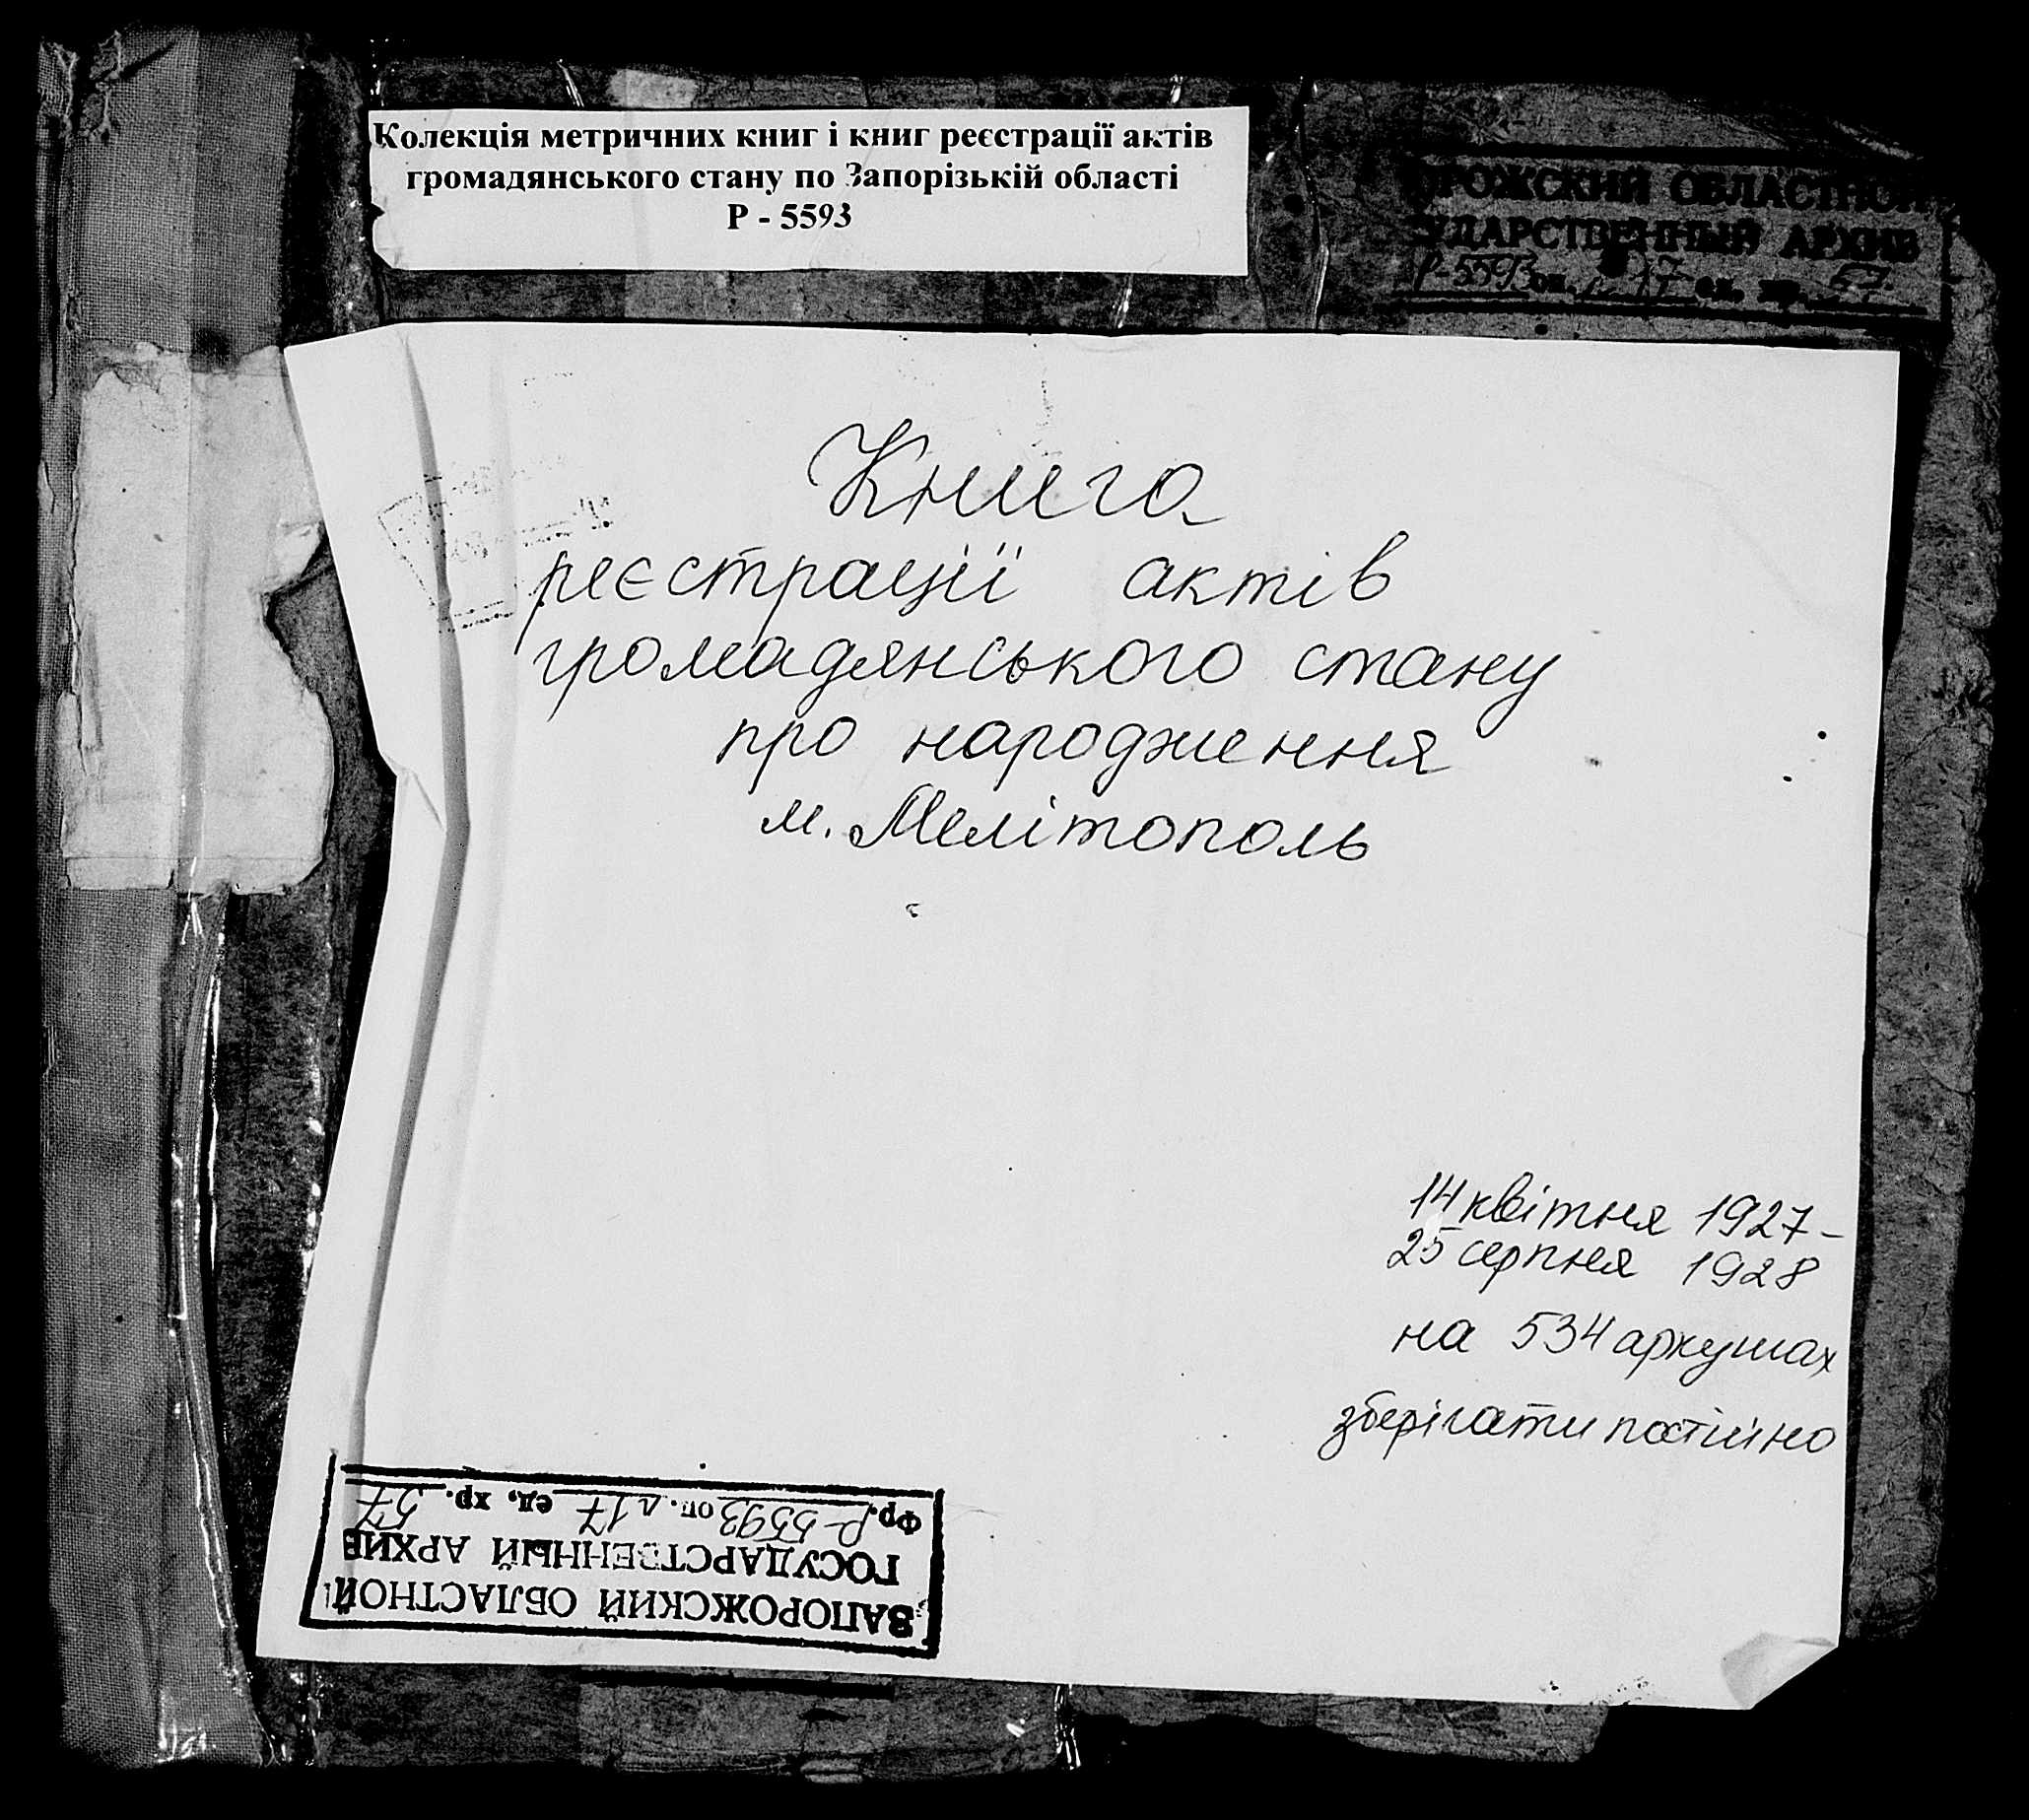 Колекція метричних книг і книг реєстрації актів
громадянського стану по Запорізькій області
Р - 5593
ОРОЖСКИЙ ОБЛАСТНОЙ
УДАРСТВЕННЫЙ АРХИВ
Р-5593 оп. 17 ед. хр. 57
Книга
реєстрації актів
громадянського стану
про народження
м. Мелітополь
14 квітня 1927-
25 серпня 1928
на 534 аркушах
зберігати постійно
ЗАПОРОЖСКИЙ ОБЛАСТНОЙ
ГОСУДАРСТВЕННЫЙ АРХИВ
Фр. Р-5593 оп. д17 ед. хр. 57